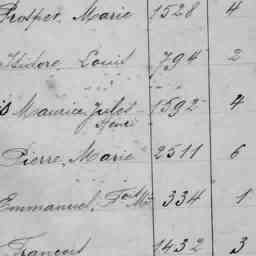 Prosper, Marie 1528 4
Isidore Louis 794 2
is Maurice, Jules 1592 4
Henri
Pierre, Marie 2511 6
Emmanuel, Fois Mie 334 1
François 1432 3